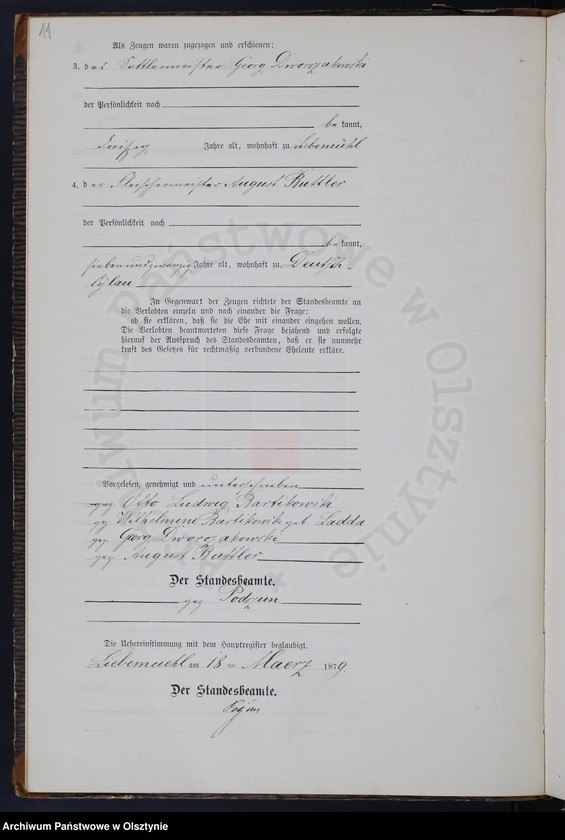 11
Als Zeugen waren zugezogen und erschienen:
3. der Sattlermeister Georg Dworzakowski
der Persönlichkeit nach
bekannt,
dreißig Jahre alt, wohnhaft zu Liebemühl
4. der Fleischermeister August Buttler
der Persönlichkeit nach
bekannt,
siebenundzwanzig Jahre alt, wohnhaft zu Deutsch-
Eylau
In Gegenwart der Zeugen richtete der Standesbeamte an
die Verlobten einzeln und nach einander die Frage:
ob sie erklären, daß sie die Ehe mit einander eingehen wollen.
Die Verlobten beantworteten diese Frage bejahend und erfolgte
hierauf der Ausspruch des Standesbeamten, daß er sie nunmehr
kraft des Gesetzes für rechtmäßig verbundene Eheleute erkläre.
Vorgelesen, genehmigt und unterschrieben
gez Otto Ludwig Bartikowski
gez Wilhelmine Bartikowski geb Ladda
gez Georg Dworzakowski
gez August Buttler
Der Standesbeamte.
gez Podzun
Die Uebereinstimmung mit dem Hauptregister beglaubigt.
Liebemuehl am 18 ten Maerz 1879.
Der Standesbeamte.
Archiwum Państwowe w Olsztynie
Archiwum Państwowe w Olsztynie